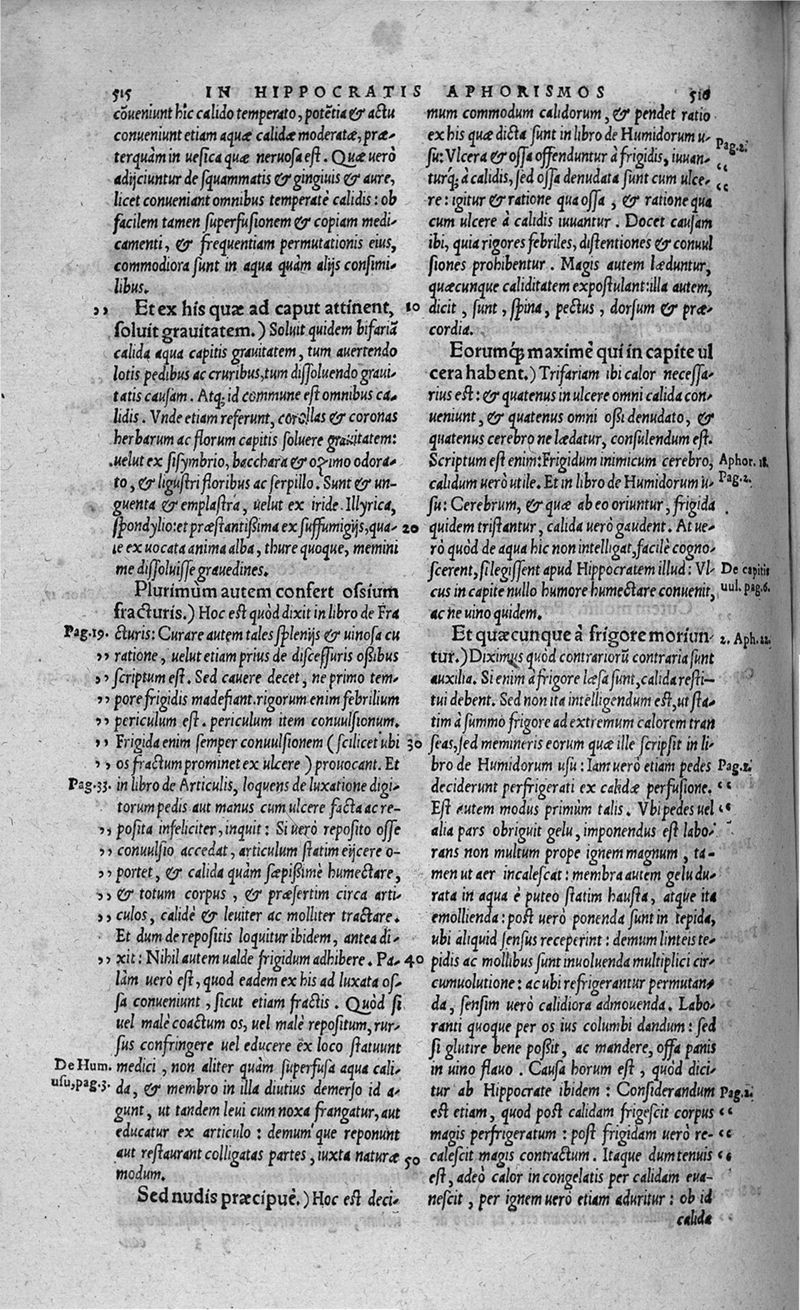 515 IN HIPPOCRATIS APHORISMOS 516
cōueniunt hic calido temperato, potētia & actu
conueniunt etiam aquæ calidæ moderatæ, præ-
terquàm in uesica quæ neruosa est. Quæ uerò
adijciuntur de squammatis & gingiuis & aure,
licet conueniant omnibus temperatè calidis: ob
facilem tamen superfusionem & copiam medi-
camenti, & frequentiam permutationis eius,
commodiora sunt in aqua quàm alijs consimi-
libus.
,, Et ex his quæ ad caput attinent, 10
soluit grauitatem.) Soluit quidem bifariā
calida aqua capitis grauitatem, tum auertendo
lotis pedibus ac cruribus, tum dissoluendo graui-
tatis causam. Atq; id commune est omnibus ca-
lidis. Vnde etiam referunt, corollas & coronas
herbarum ac florum capitis soluere grauitatem:
uelut ex sisymbrio, bacchara & ozimo odora-
to, & ligustri floribus ac serpillo. Sunt & un-
guenta & emplastra, uelut ex iride Illyrica,
spondylio: et præstantißima ex suffumigijs, qua- 20
le ex uocata anima alba, thure quoque, memini
me dissoluisse grauedines.
Plurimum autem confert ossium
fracturis.) Hoc est quòd dixit in libro de Fra
Pag.19. cturis: Curare autem tales splenijs & uinosa cu
,, ratione, uelut etiam prius de discessuris oßibus
,, scriptum est. Sed cauere decet, ne primo tem-
,, pore frigidis madefiant. rigorum enim febrilium
,, periculum est. periculum item conuulsionum.
,, Frigida enim semper conuulsionem (scilicet ubi 30
,, os fractum prominet ex ulcere) prouocant. Et
Pag.33. in libro de Articulis, loquens de luxatione digi-
torum pedis aut manus cum ulcere facta ac re-
,, posita infeliciter, inquit: Si uerò reposito osse
,, conuulsio accedat, articulum statim eijcere o-
,, portet, & calida quàm sæpißimè humectare,
,, & totum corpus, & præsertim circa arti-
,, culos, calidè & leuiter ac molliter tractare.
Et dum de repositis loquitur ibidem, antea di-
,, xit: Nihil autem ualde frigidum adhibere. Pa- 40
làm uerò est, quod eadem ex his ad luxata os-
sa conueniunt, sicut etiam fractis. Quòd si
uel malè coactum os, uel malè repositum, rur-
sus confringere uel educere ex loco statuunt
De Hum. medici, non aliter quàm superfusa aqua cali-
usu, pag.3. da, & membro in illa diutius demerso id a-
gunt, ut tandem leui cum noxa frangatur, aut
educatur ex articulo: demum que reponunt
aut restaurant colligatas partes, iuxta naturæ 50
modum.
Sed nudis præcipuè.) Hoc est deci-
mum commodum calidorum, & pendet ratio
ex his quæ dicta sunt in libro de Humidorum u- Pag.2.
su: Vlcera & ossa offenduntur à frigidis, iuuan- ‘‘
turq; à calidis, sed ossa denudata sunt cum ulce- ‘‘
re: igitur & ratione qua ossa, & ratione qua
cum ulcere à calidis iuuantur. Docet causam
ibi, quia rigores febriles, distentiones & conuul
siones prohibentur. Magis autem læduntur,
quæcunque caliditatem expostulant: illa autem,
dicit, sunt, spina, pectus, dorsum & præ-
cordia.
Eorumq; maximè qui in capite ul
cera habent.) Trifariam ibi calor necessa-
rius est: & quatenus in ulcere omni calida con-
ueniunt, & quatenus omni oßi denudato, &
quatenus cerebro ne lædatur, consulendum est.
Scriptum est enim: Frigidum inimicum cerebro, Aphor.18.
calidum uerò utile. Et in libro de Humidorum u- Pag.2.
su: Cerebrum, & quæ ab eo oriuntur, frigida
quidem tristantur, calida uerò gaudent. At ue-
rò quòd de aqua hic non intelligat, facilè cogno-
scerent, si legissent apud Hippocratem illud: Vl- De capitis
cus in capite nullo humore humectare conuenit, uul. pag.6.
ac ne uino quidem.
Et quæcunque à frigore moriun- 2. Aph.22.
tur.) Diximus quòd contrariorū contraria sunt
auxilia. Si enim à frigore læsa sunt, calida resti-
tui debent. Sed non ita intelligendum est, ut sta-
tim à summo frigore ad extremum calorem tran
seas, sed memineris eorum quæ ille scripsit in li-
bro de Humidorum usu: Iam uerò etiam pedes Pag.2.
deciderunt perfrigerati ex calidæ perfusione. ‘‘
Est autem modus primùm talis. Vbi pedes uel ‘‘
alia pars obriguit gelu, imponendus est labo-
rans non multum prope ignem magnum, ta-
men ut aer incalescat: membra autem gelu du-
rata in aqua è puteo statim hausta, atque ita
emollienda: post uerò ponenda sunt in tepida,
ubi aliquid sensus receperint: demum linteis te-
pidis ac mollibus sunt inuoluenda multiplici cir-
cumuolutione: ac ubi refrigerantur permutan-
da, sensim uerò calidiora admouenda. Labo-
ranti quoque per os ius columbi dandum: sed
si glutire bene poßit, ac mandere, offa panis
in uino flauo. Causa horum est, quòd dici-
tur ab Hippocrate ibidem: Considerandum Pag.2.
est etiam, quod post calidam frigescit corpus ‘‘
magis perfrigeratum: post frigidam uerò re- ‘‘
calescit magis contractum. Itaque dum tenuis ‘‘
est, adeò calor in congelatis per calidam eua-
nescit, per ignem uerò etiam aduritur: ob id
calida